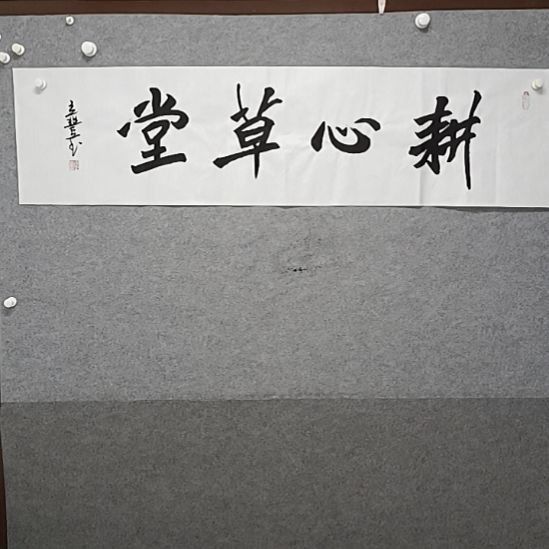 耕心草堂